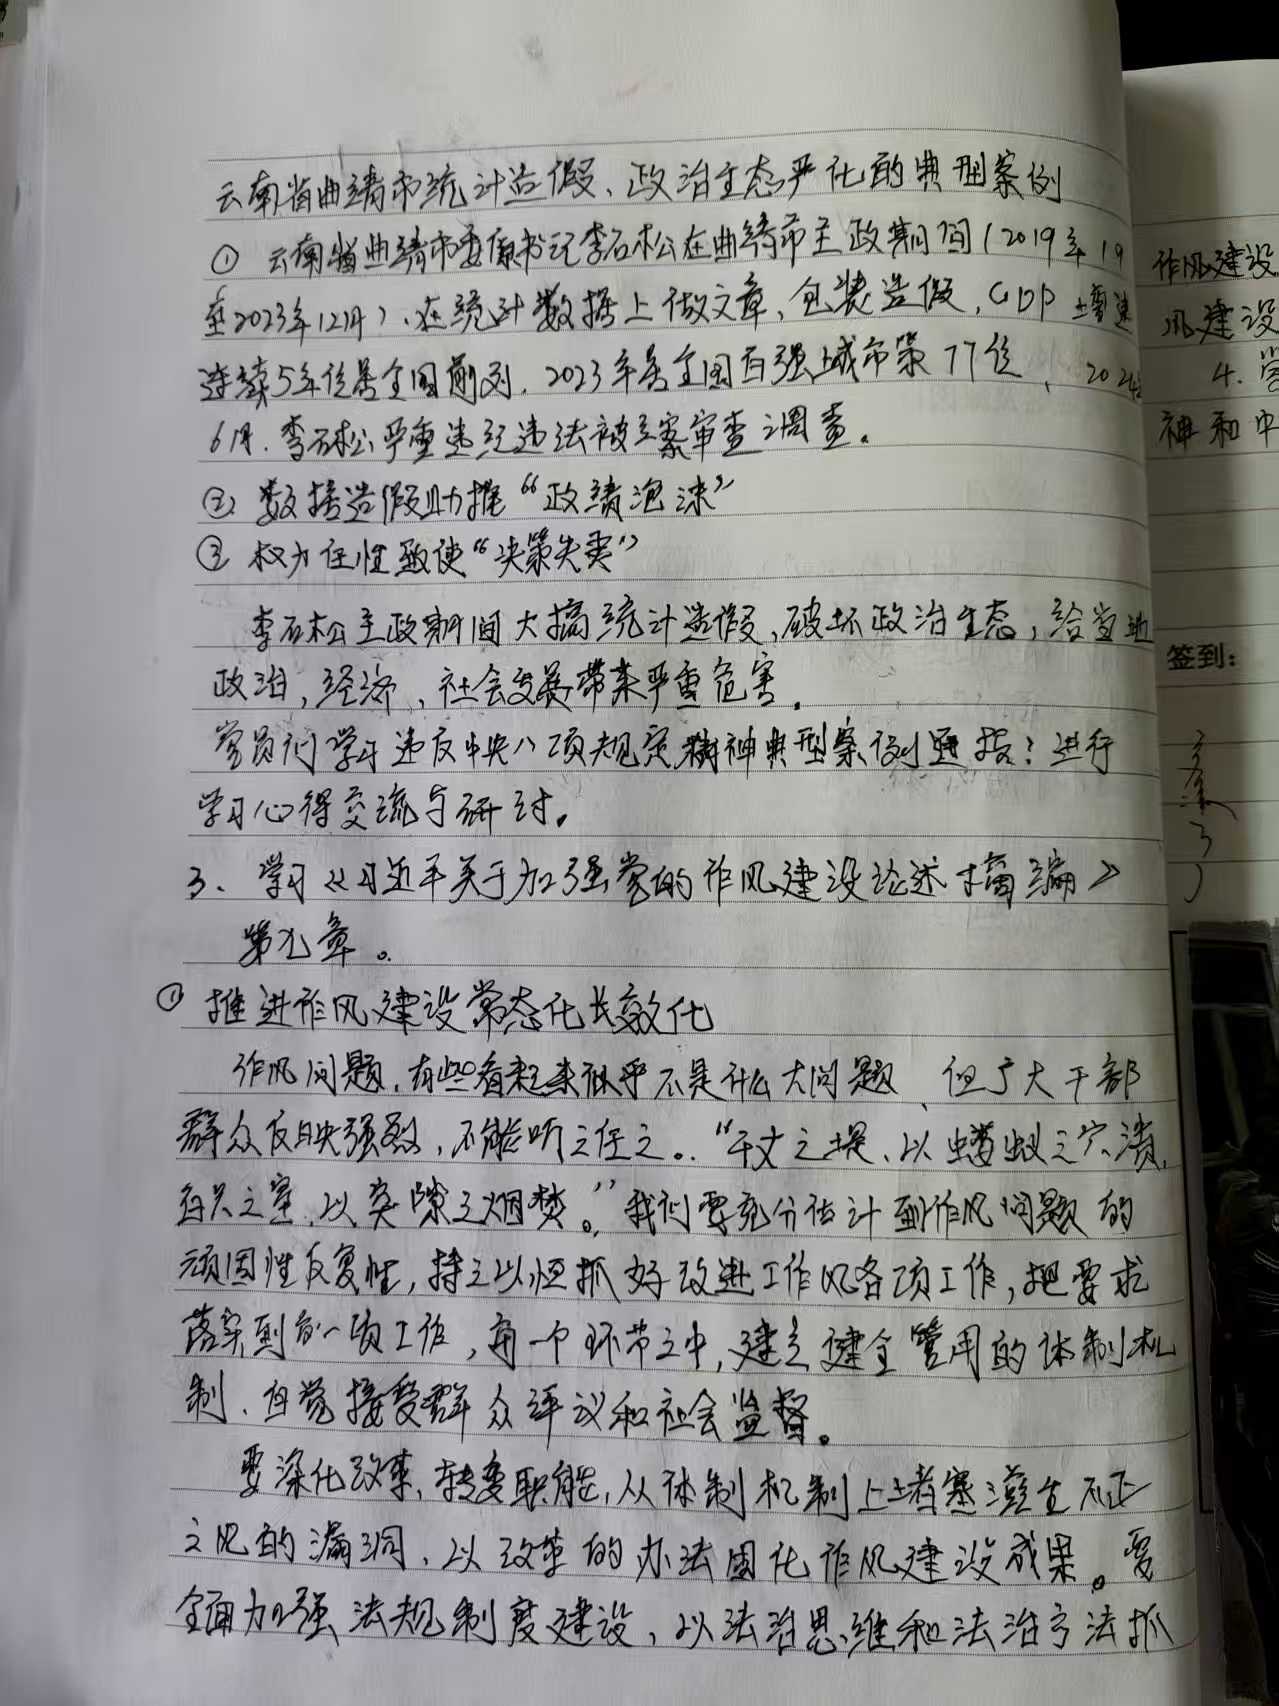 云南省曲靖市统计造假、政治生态严化的典型案例
① 云南省曲靖市委原书记李石松在曲靖市主政期间(2019年1月
至2023年12月)、在统计数据上做文章、包装造假, GDP增速
连续5年位居全国前列. 2023年居全国百强城市第77位、2024年
6月. 李石松严重违纪违法被立案审查调查。
② 数据造假助推“政绩泡沫”
③ 权力任性致使“决策失灵”
李石松主政期间大搞统计造假,破坏政治生态,给当地
政治,经济,社会发展带来严重危害.
党员们学习违反中央八项规定精神典型案例通报:进行
学习心得交流与研讨。
3、学习《习近平关于加强党的作风建设论述摘编》
第九章。
① 推进作风建设常态化长效化
作风问题,有些看起来似乎不是什么大问题、但广大干部
群众反映强烈,不能听之任之。“千丈之堤、以蝼蚁之穴溃,
百尺之室,以突隙之烟焚。”我们要充分估计到作风问题的
顽固性反复性,持之以恒抓好改进工作风各项工作,把要求
落实到每一项工作,每一个环节之中,建立健全管用的体制机
制、自觉接受群众评议和社会监督。
要深化改革,转变职能,从体制机制上堵塞滋生不正
之风的漏洞、以改革的办法固化作风建设成果。要
全面加强法规制度建设、以法治思维和法治方法抓
作风建设
风建设
4.
神和中
签到: